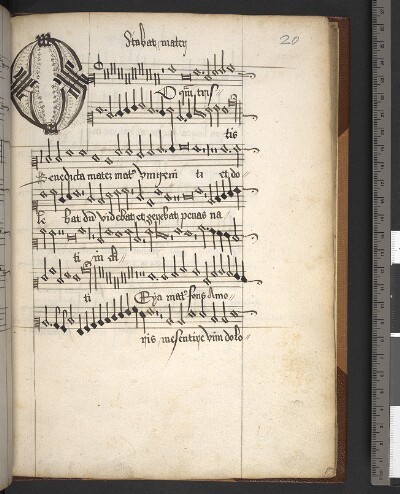 Stabat mater
20
O quā tris
tis
Benedicta mater mat
ti et do
le bat dū videbat et gerebat penas na
ti
ti Eya mat fons amo
ris me sentire vim dolo